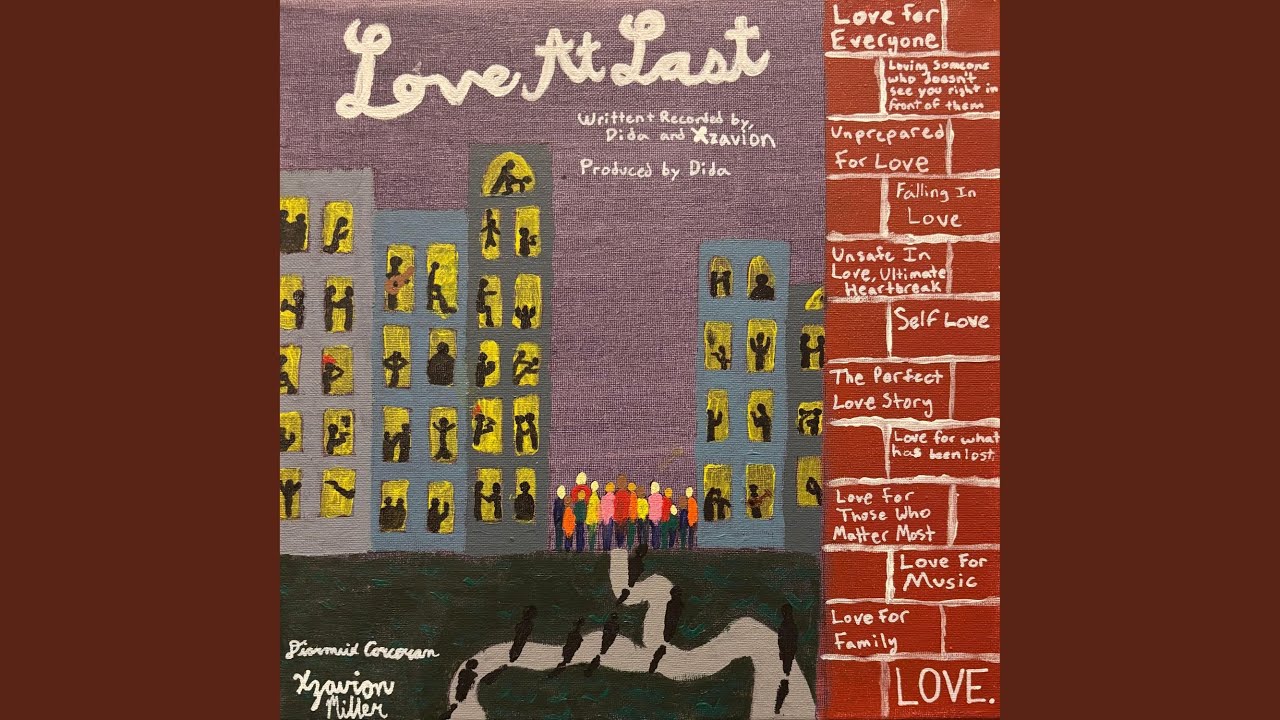 Love At Last
Written + Recorded by,
Dida and Xzavion
Produced by Dida
Diarmuid Corcoran
Xzavion
Miller
Love for
Everyone
Loving Someone
who doesn't
see you right in
front of them
Unprepared
For Love
Falling In
Love
Unsafe In
Love, Ultimate
Heartbreak
Self Love
The Perfect
Love Story
Love for what
has been lost.
Love For
Those Who
Matter Most
Love For
Music
Love For
Family
LOVE.